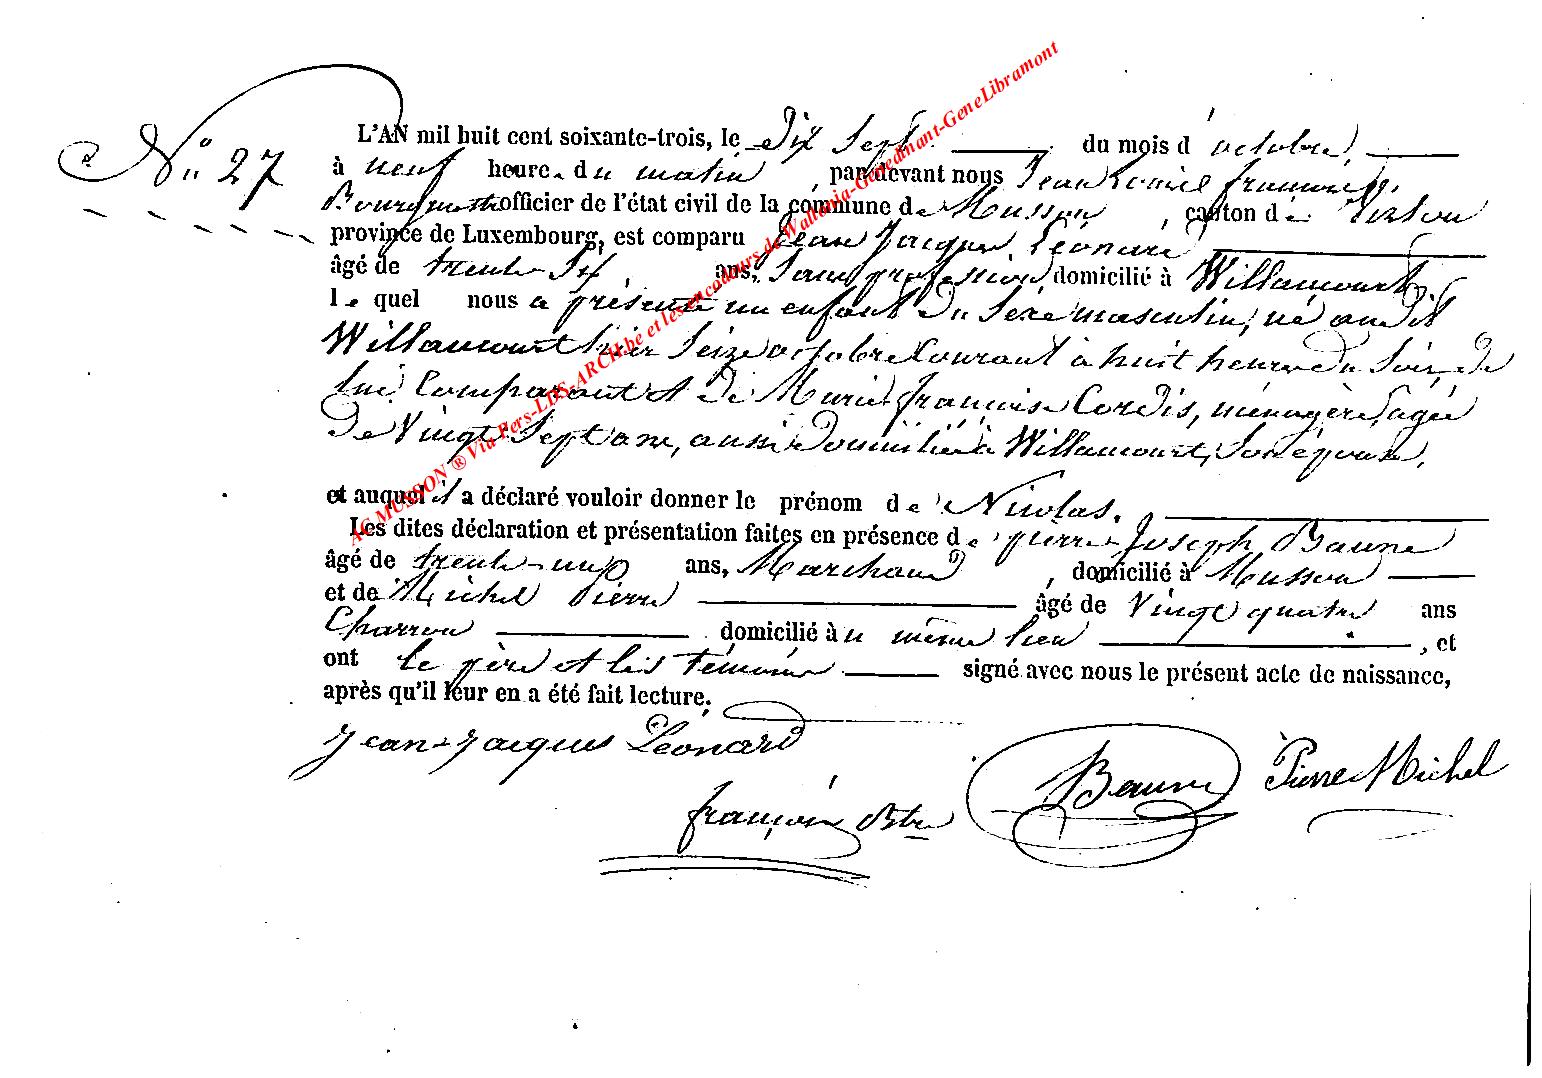 N° 27
L'AN mil huit cent soixante-trois, le Dix Sept du mois d'octobre,
à neuf heure du matin, par devant nous Jean François,
Bourgmestre officier de l'état civil de la commune de Musson, canton de Virton
province de Luxembourg, est comparu Jean Jacques Léonard
âgé de trente-Six ans, Sans profession domicilié à Willancourt,
lequel nous a présenté un enfant du Sexe masculin, né audit
Willancourt hier Seize octobre Courant à huit heure du Soir, de
lui Comparant et de Marie-françoise Cordis, ménagère, agée
de Vingt Sept ans, aussi domiciliée à Willancourt, Son épouse,
et auquel il a déclaré vouloir donner le prénom de Nicolas.
Les dites déclaration et présentation faites en présence de pierre-Joseph Baune
âgé de trente-un ans, Marchand, domicilié à Musson
et de Michel Pierre âgé de Vingt quatre ans
Charron domicilié au même lieu, et
ont le père et les témoins signé avec nous le présent acte de naissance,
après qu'il leur en a été fait lecture.
Jean-Jacques Léonard
françois Btre Baune Pierre Michel
AC MUSSON ® Via Pers-LDS-ARCH.be et les encodeurs de Wallonia-Genedinant-GeneLibramont